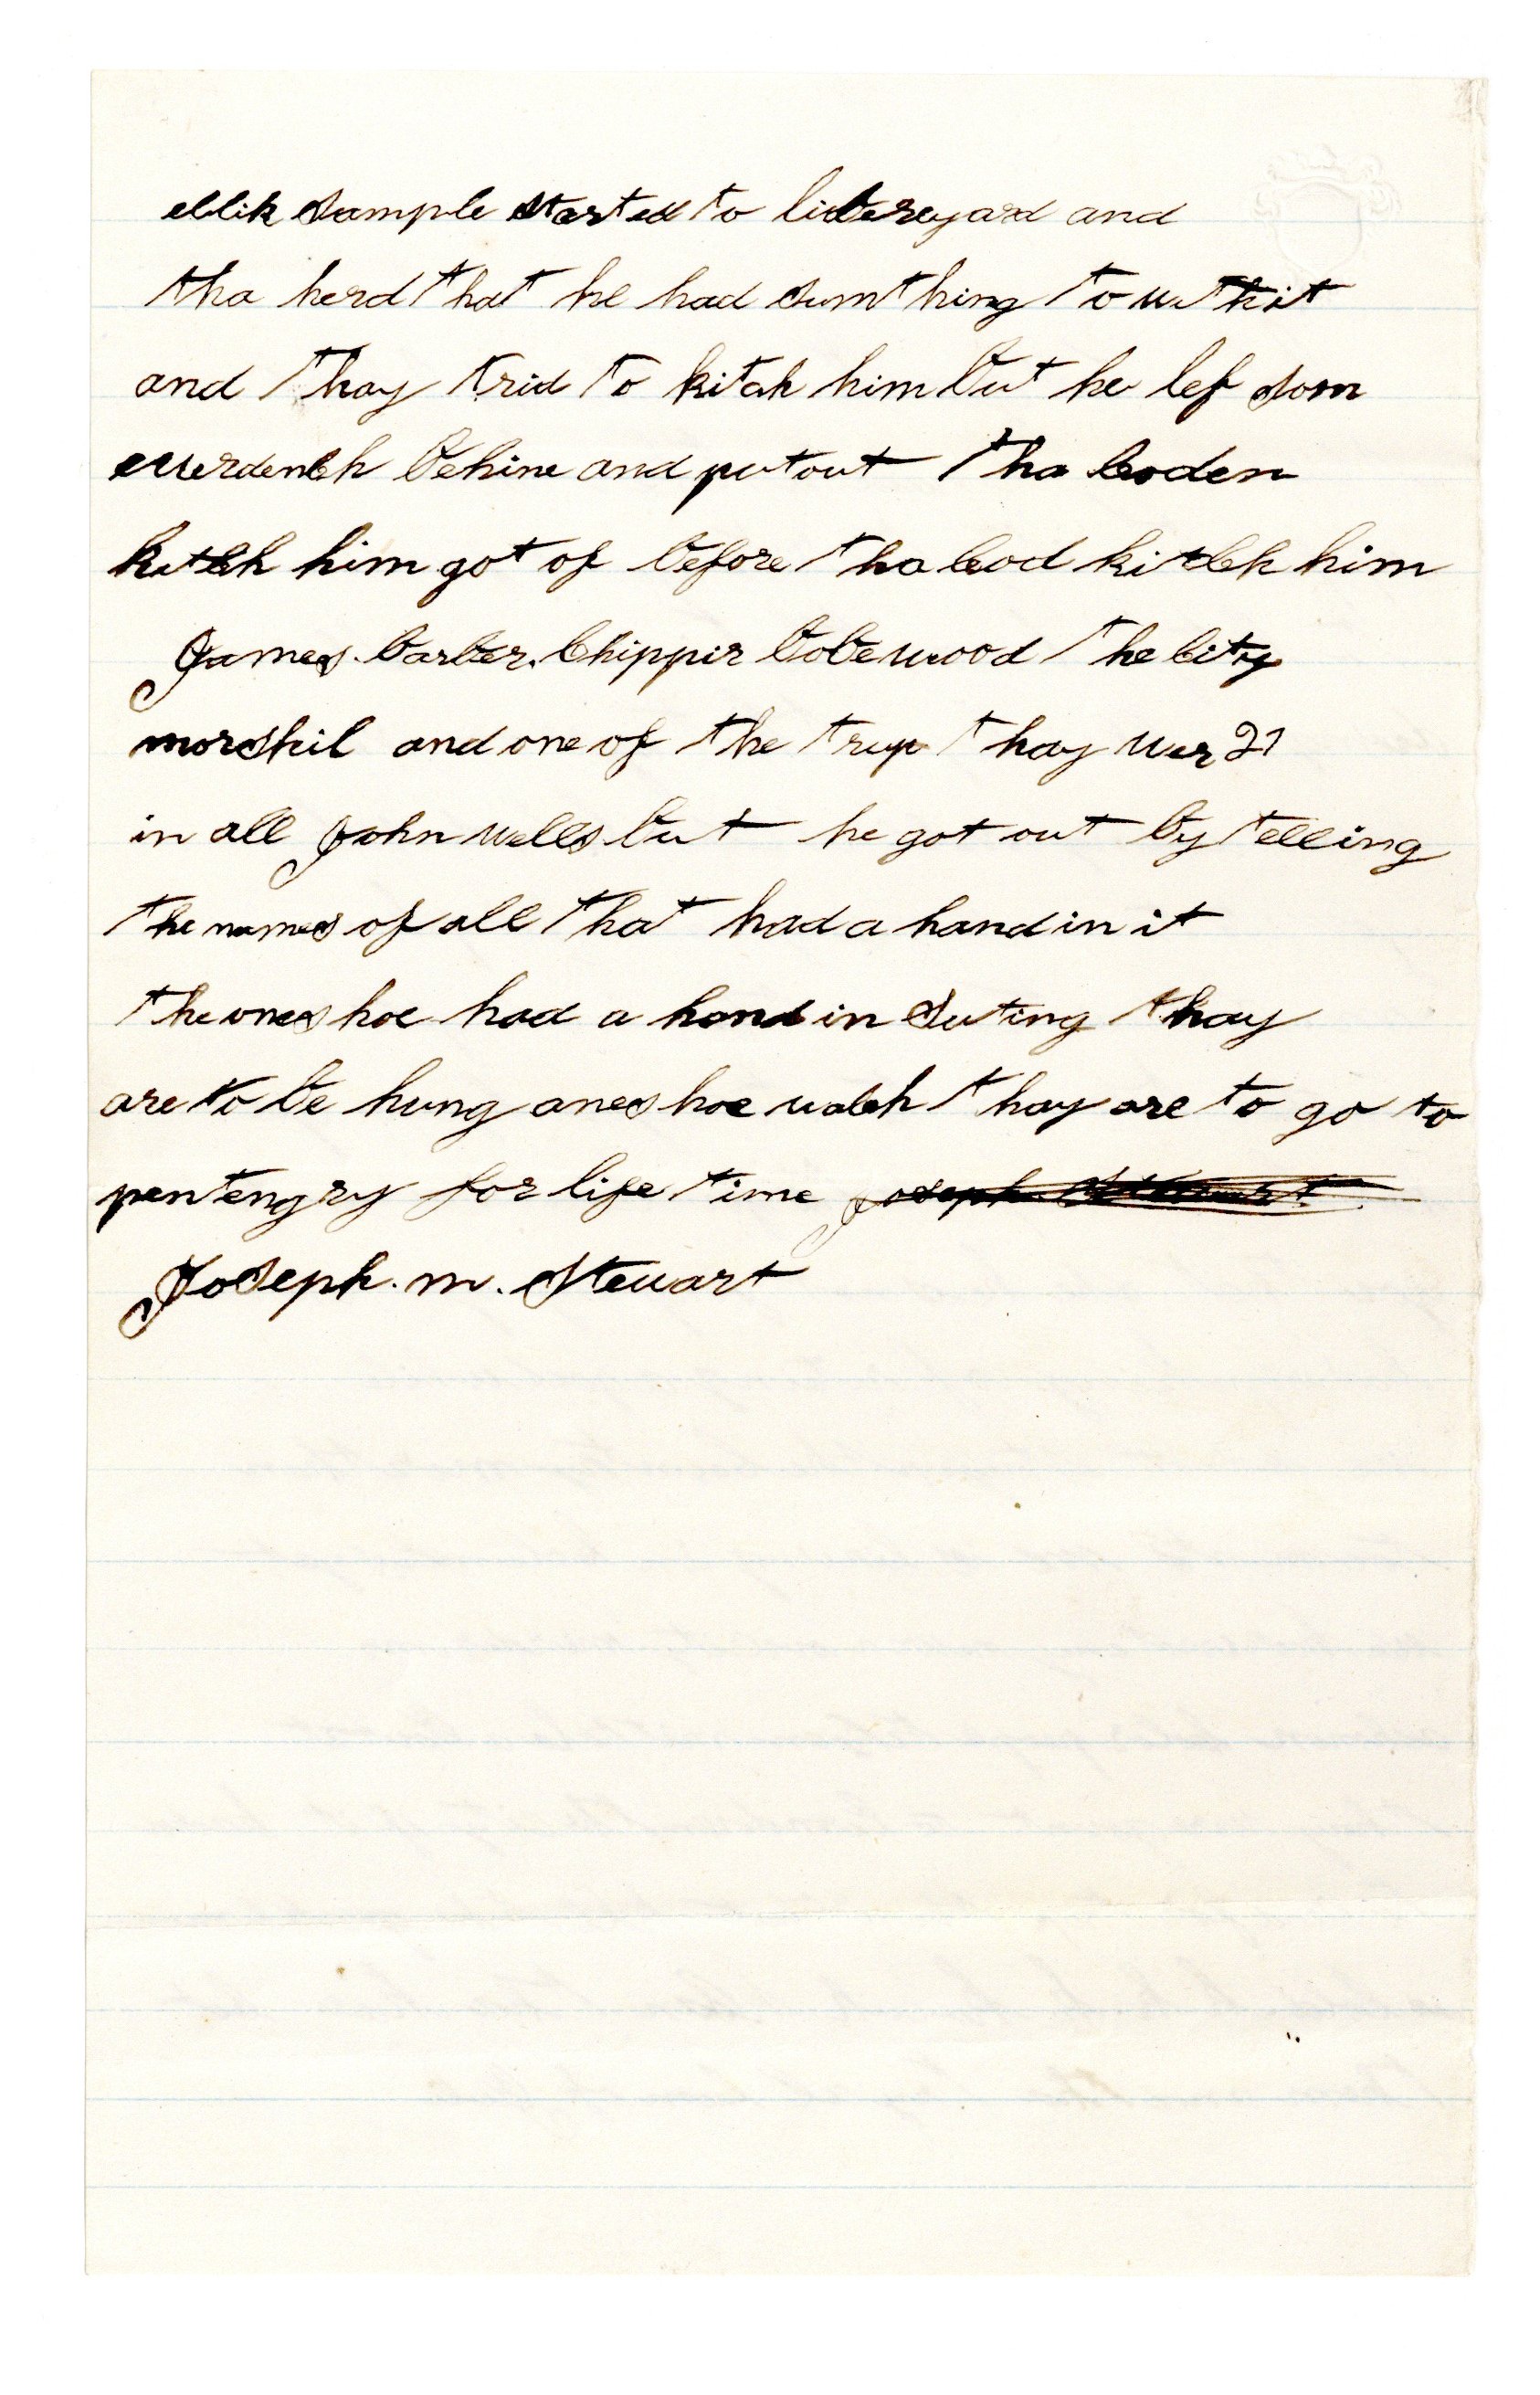 ellik Sample started to licbereyard and
tha herd that he had sumthing to wi thit
and thay trid to kitch him but he lef som
everdench behine and put out tha coden
kitch him got of before tha cod kitch him
James. Carter. Chippir Bobewood the city
morshil and one of the trup thay wer 21
in all John Wells but he got out by telling
the names of all that had a hand in it
the ones hoe had a hand in Suting thay
are to be hung anes hoe wach thay are to go to
pentengry for life time Joseph Stewart
Joseph. m. Stewart